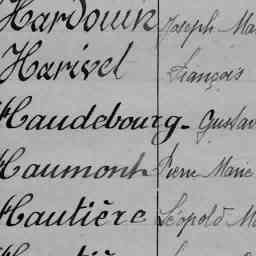 Hardouin Joseph Ma
Harivel François
Haudebourg. Gustav
Haumont Pierre Marie
Hautière Léopold M